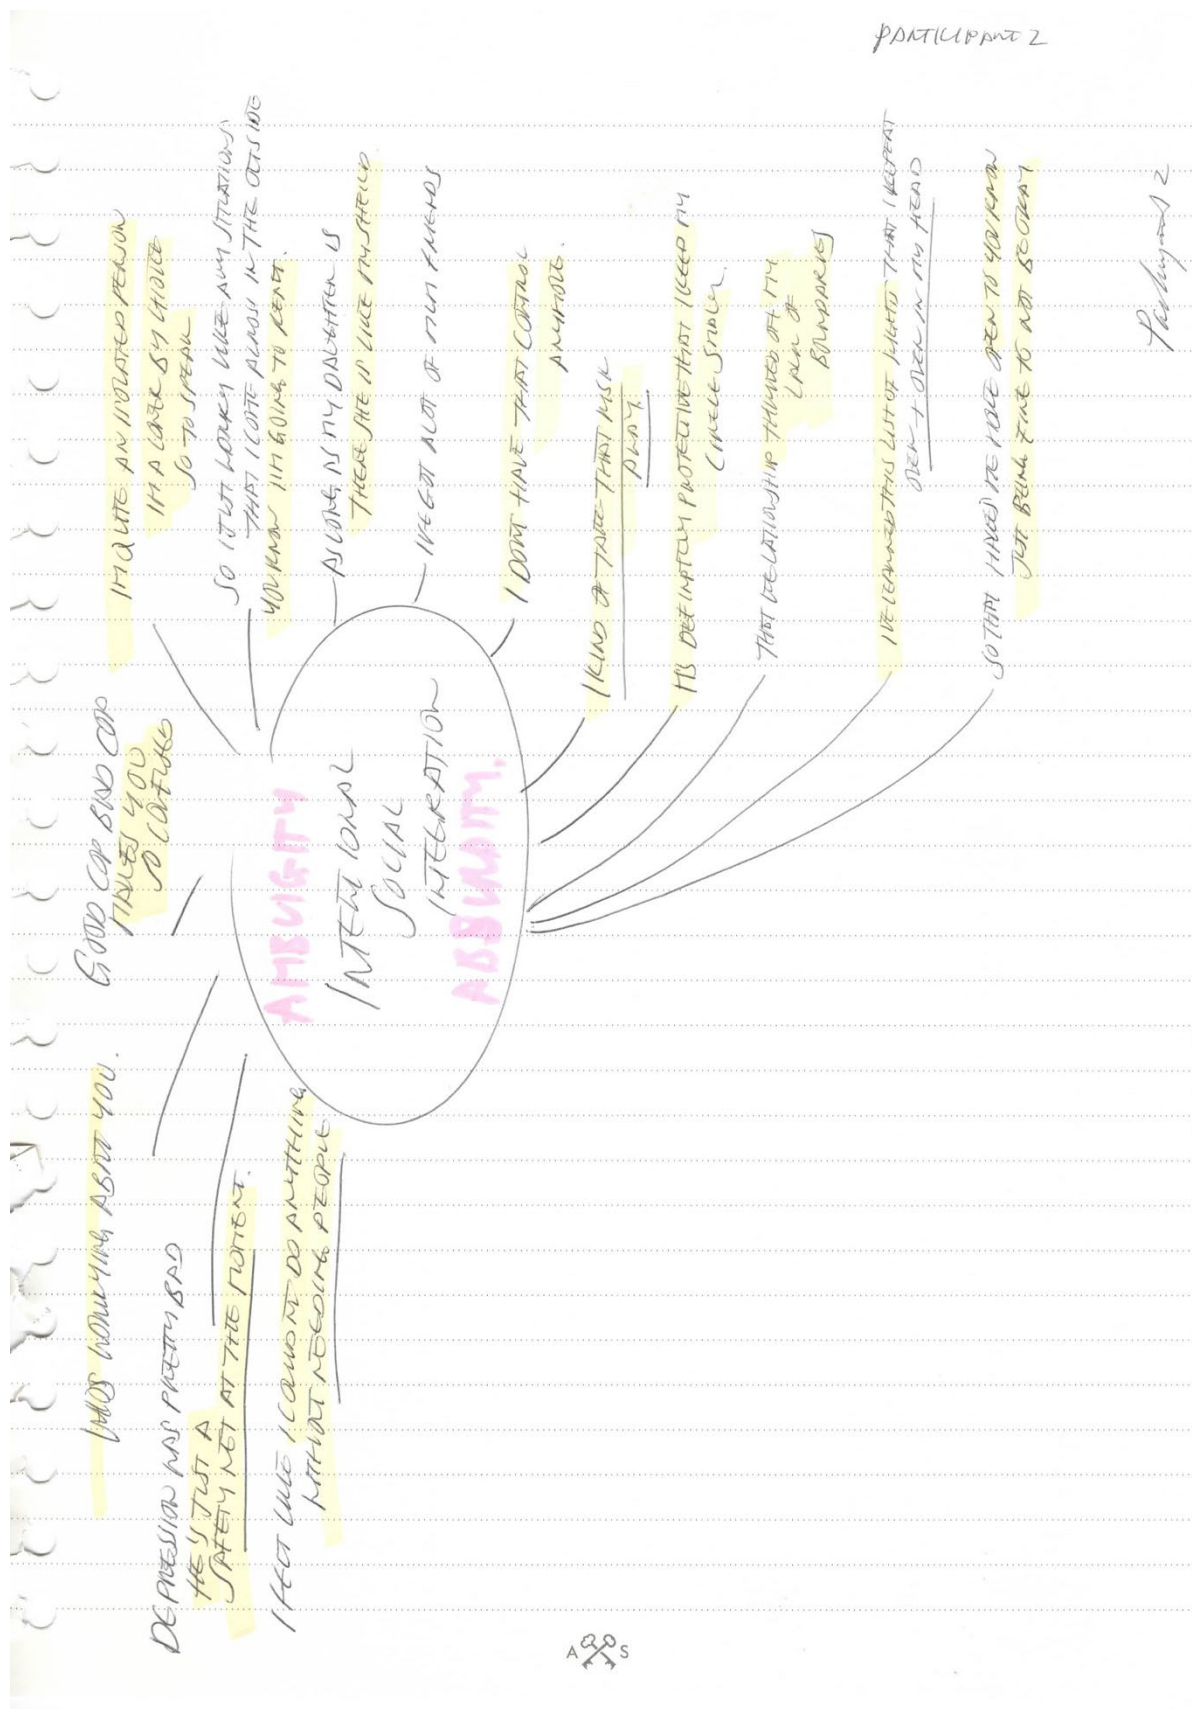 PARTICIPANT 2
WHOS WORRYING ABOUT YOU.
DEPRESSION WAS PRETTY BAD
HE'S JUST A
SAFETY NET AT THE MOMENT.
I FELT LIKE I COULDNT DO ANYTHING
WITHOUT NEEDING PEOPLE
GOOD COP BAD COP
MAKES YOU
SO CONFUSED
IM QUITE AN ISOLATED PERSON
IM A LONER BY CHOICE
SO TO SPEAK
SO I JUST WORRY LIKE ANY SITUATIONS
THAT I COME ACROSS IN THE OUTSIDE
YOU KNOW IM GOING TO REACT.
AS LONG AS MY DAUGHTER IS
THERE SHE IS LIKE MY SHEILD
IVE GOT ALOT OF MUM FRIENDS
I DONT HAVE THAT CONTROL
ANYMORE.
I KIND OF TAKE THAT RISK
AWAY.
ITS DEFINITELY PROTECTIVE THAT I KEEP MY
CIRCLE SMALL
THAT RELATIONSHIP THRIVED OFF MY
LACK OF
BOUNDARIES
IVE LEARNED THIS LIST OF THAT I REPEAT
OVER + OVER IN MY HEAD
SO THAT MAKES ME MORE OPEN TO YOU KNOW
JUST BEING FINE TO NOT BE OKAY
AMBUIGITY
INTENTIONAL
SOCIAL
INTEGRATION
ABSURDITY.
Participant 2
A S